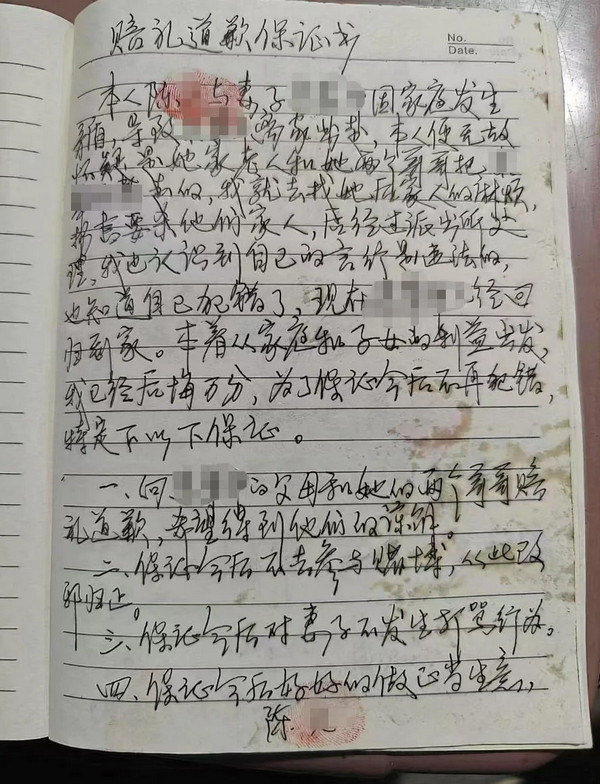 赔礼道歉保证书
No.
Date.
本人陈 与妻子 因家庭发生
矛盾,导致 离家出走,本人便无故
怀疑是她家老人和她两个哥哥把
走的,我就去找她后家人的麻烦,
扬言要杀他们家人,后经过派出所处
理,我也认识到自己的言行是违法的,
也知道自己犯错了,现在 经回
归到家。本着从家庭和子女的利益出发,
我已经后悔万分,为了保证今后不再犯错,
特定下以下保证。
一、向 的父母和她的两个哥哥赔
礼道歉,希望得到他们的谅解。
二、保证今后不去参与赌博,从此改
邪归正。
三、保证今后对妻子不发生打骂行为。
四、保证今后好好的做正当生意。
陈